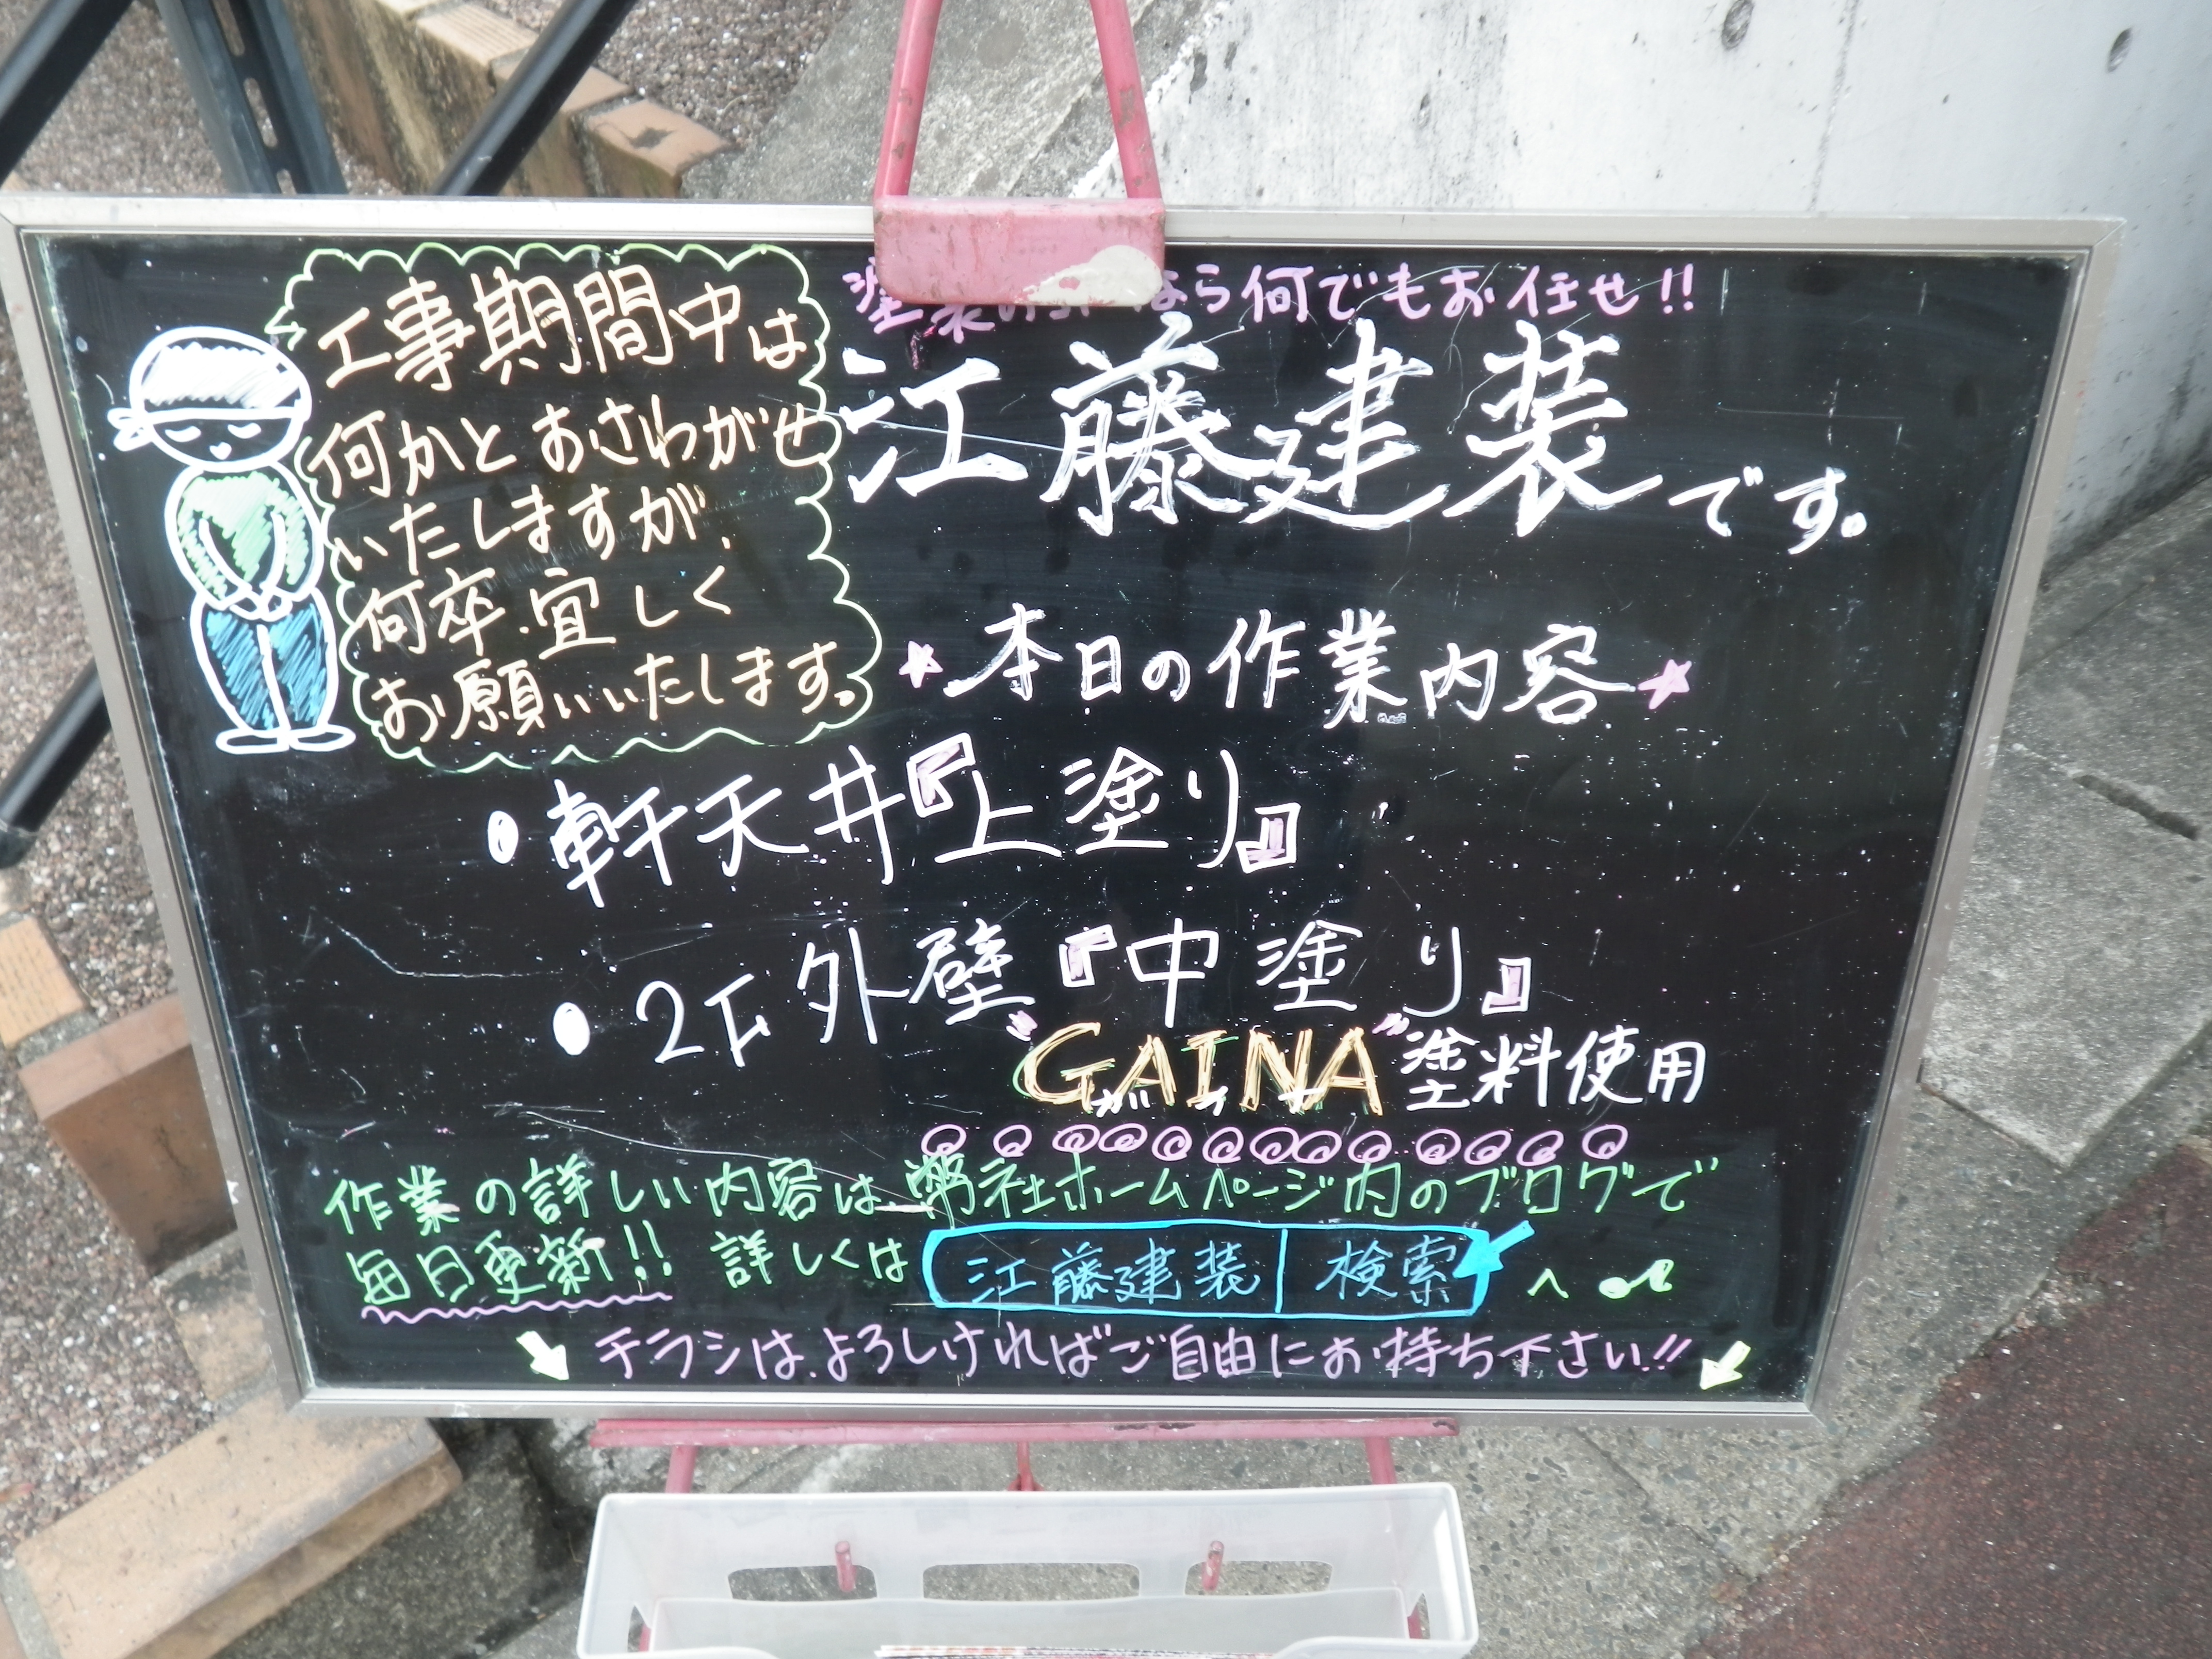 工事期間中は
何かとおさわがせ
いたしますが、
何卒、宜しく
お願いいたします。
塗装の なら何でもお任せ!!
江藤建装です。
★本日の作業内容★
・軒天井『上塗り』
・2F外壁『中塗り』
"GAINA"塗料使用
ガイナ
作業の詳しい内容は弊社ホームページ内のブログで
毎日更新!! 詳しくは 江藤建装 | 検索 へ♪
チラシは、よろしければご自由にお持ち下さい!!